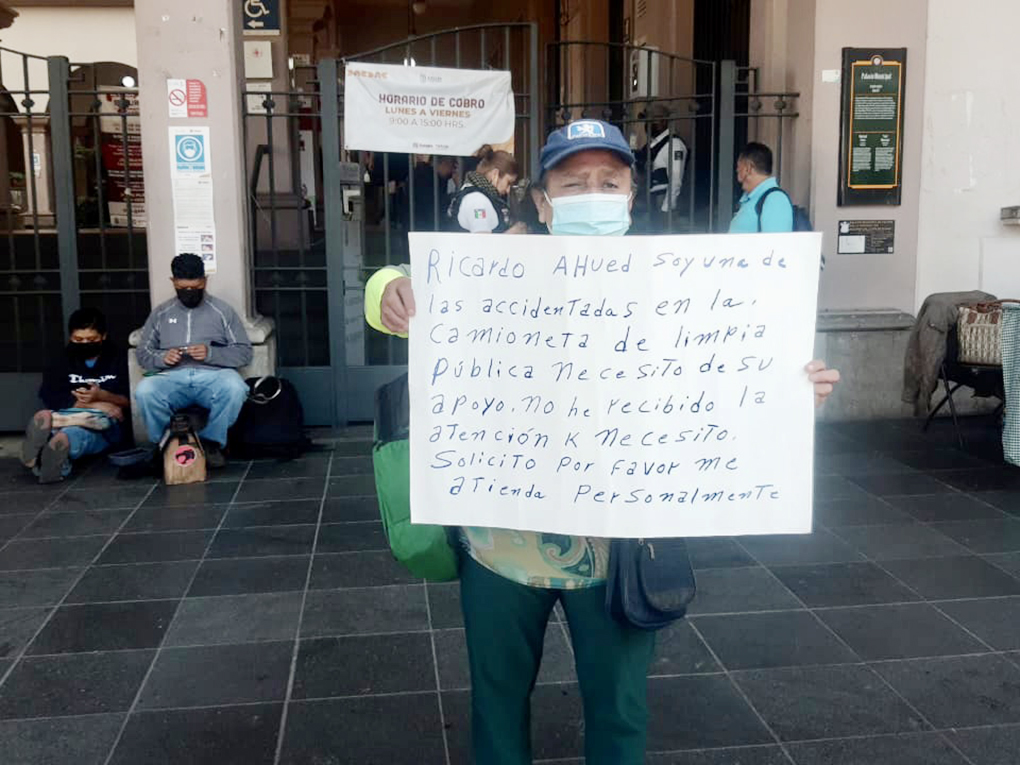 HORARIO DE COBRO
LUNES A VIERNES
9:00 A 15:00 HRS.
Palacio Municipal
Ricardo AHued soy una de
las accidentadas en la.
camioneta de limpia
Pública necesito de su
apoyo. no he recibido la
atención K necesito.
Solicito por favor me
atienda personalmente